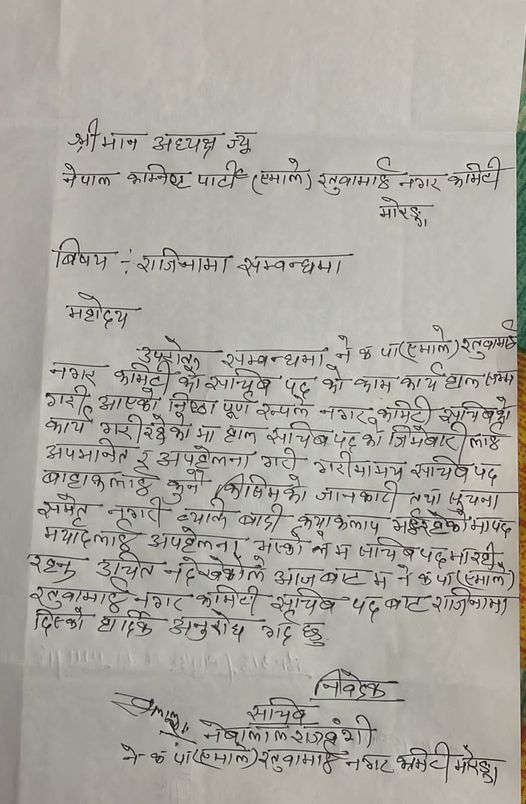 श्रीमान अध्यक्ष ज्यू
नेपाल कम्निष्ट पार्टी (एमाले) रतुवामाई नगर कमिटी
मोरङ्ग
बिषय :- राजिनामा सम्वन्धमा
महोदय
उपरोक्त सम्वन्धमा ने क पा (एमाले) रतुवामाई
नगर कमिटी को सचिब पद को काम कार्य हाल सम्म
गरी आएको निष्ठा पूर्ण रुपले नगर कमिटी सचिबको
कार्य गरी रहेको मा हाल सचिब पद का जिमेबारी लाई
अपमानित र अपहेलना गरी गरीमामय सचिब पद
बाहाक लाई कुनै किसिमको जानकारी तथा सूचना
समेत नगरी पद
मर्यादलाई अपहेलना भएको ले म सचिब पद मा रही
रहनु उचित नदेखेकोले आज बाट म ने क पा (एमाले)
रतुवामाई नगर कमिटी सचिब पद बाट राजिनामा
दिएको हार्दिक अनुरोध गर्द छु
निवेदक
सचिब
नेबालाल राजवंशी
ने क पा (एमाले) रतुवामाई नगर कमिटी मोरङ्ग